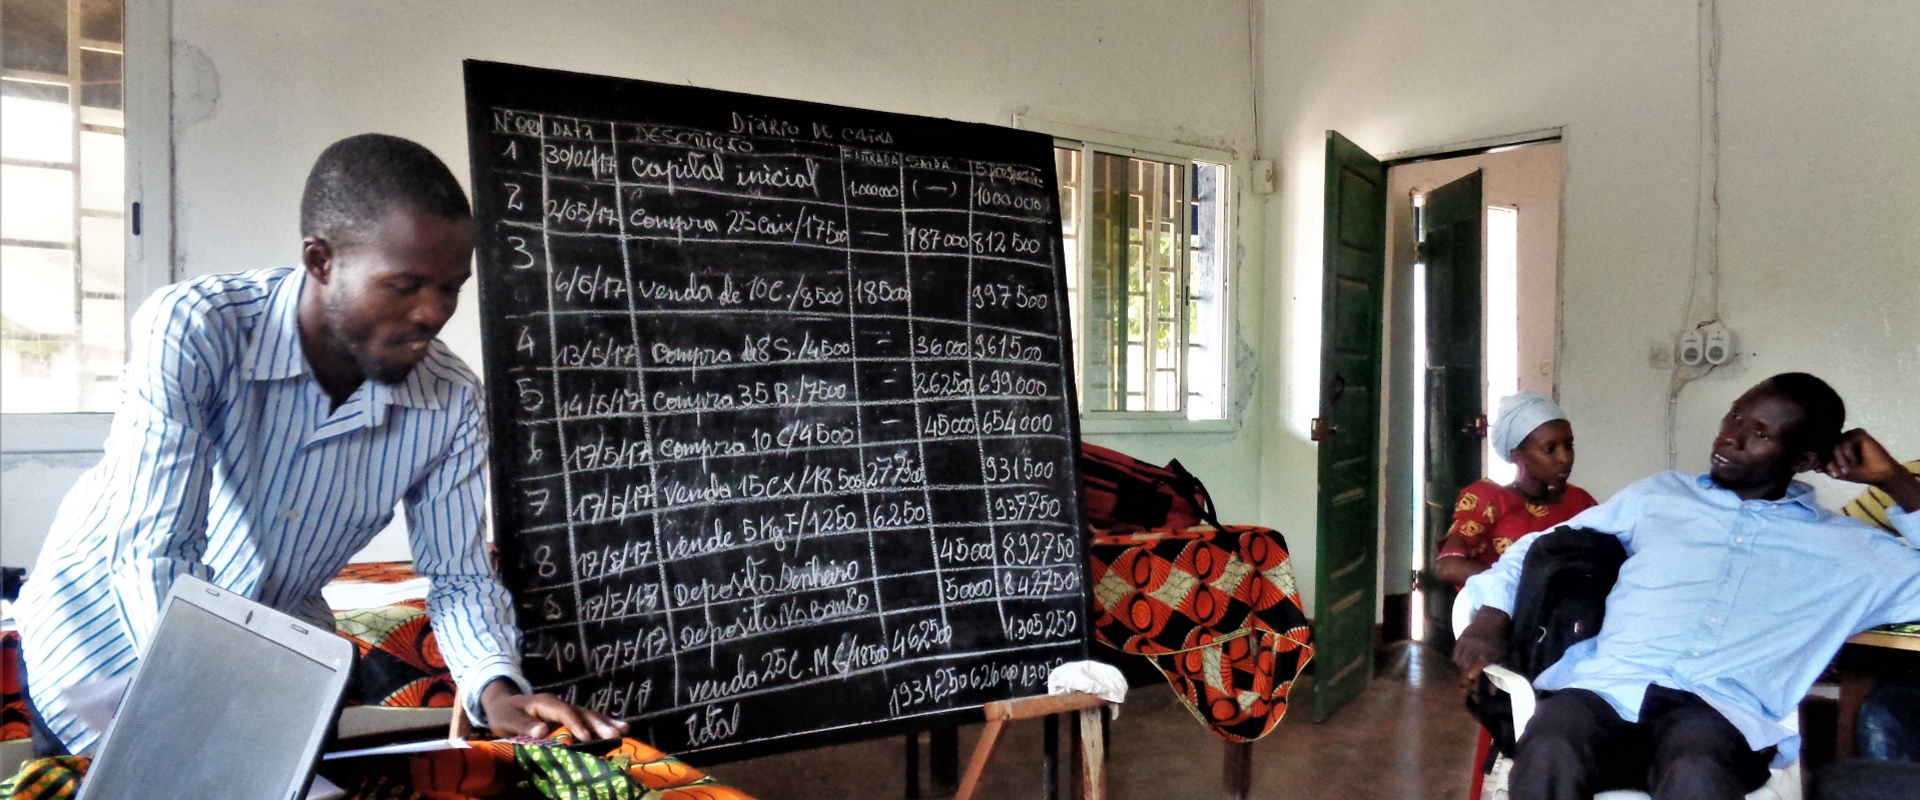 DIÁRIO DE CAIXA
Nº ORD DATA DESCRIÇÃO ENTRADA SAIDA
1 30/04/17 capital inicial 1.000000 (—) 1000 000
2 2/05/17 compra 25 caix/1750 — 187000 812 500
3 6/5/17 venda de 10C./8500 18500 997500
4 13/5/17 compra d8 S./4500 - 36000 961500
5 14/5/17 compra 35 R./7500 - 262500 699000
6 17/5/17 compra 10 C/4500 - 45000 654000
7 17/5/17 venda 15CX/18.500 277500 931500
8 17/5/17 vende 5Kg F/1250 6250 937750
9 17/5/17 Deposito Denheiro 45000 892750
10 17/5/17 Deposito No Banko 50000 842750
17/5/17 venda 25C.M €/18500 462500 1.305250
Total 1931250 626000